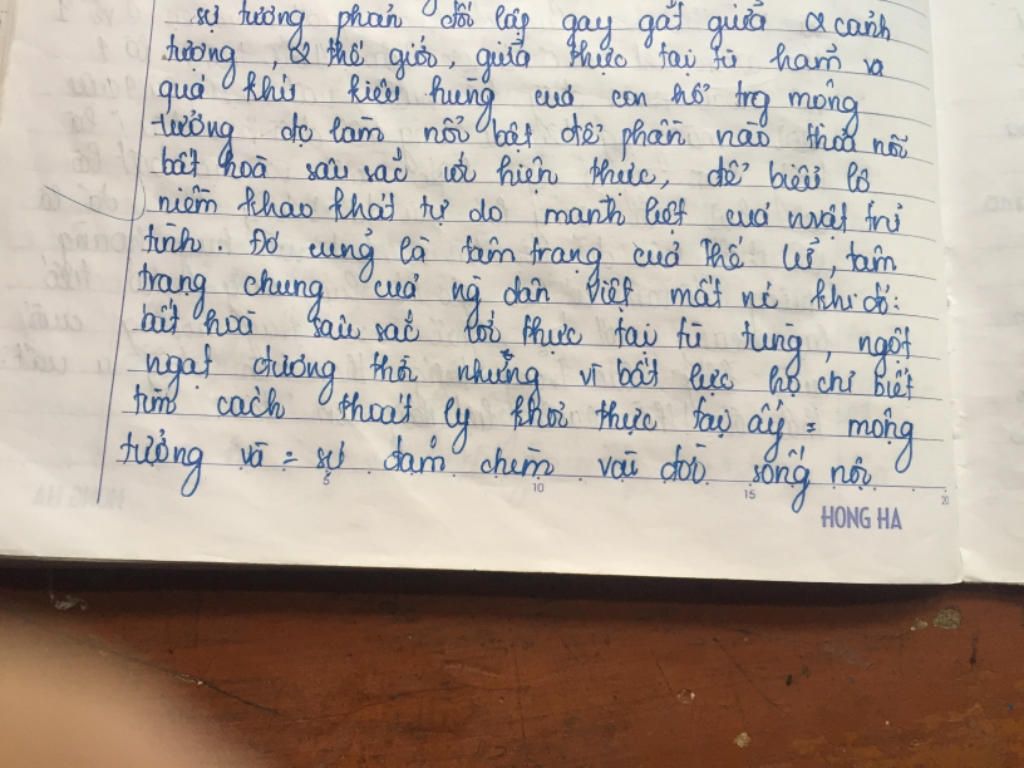 sự tương phản đối lập gay gắt giữa 2 cảnh
tượng, 2 thế giới, giữa thực tại tù hãm và
quá khứ kiêu hùng của con hổ trg mộng
tưởng đc làm nổi bật để phần nào thoả nỗi
bất hoà sâu sắc với hiện thực, để biểu lộ
niềm khao khát tự do mãnh liệt của nvật trữ
tình. Đó cũng là tâm trạng của Thế Lữ, tâm
trạng chung của ng dân Việt mất nc khi đó:
bất hoà sâu sắc với thực tại tù túng, ngột
ngạt đương thời nhưng vì bất lực họ chỉ biết
tìm cách thoát ly khỏi thực tại ấy = mộng
tưởng và = sự đắm chìm vài đời sống nội
5 10 15 20
HONG HA